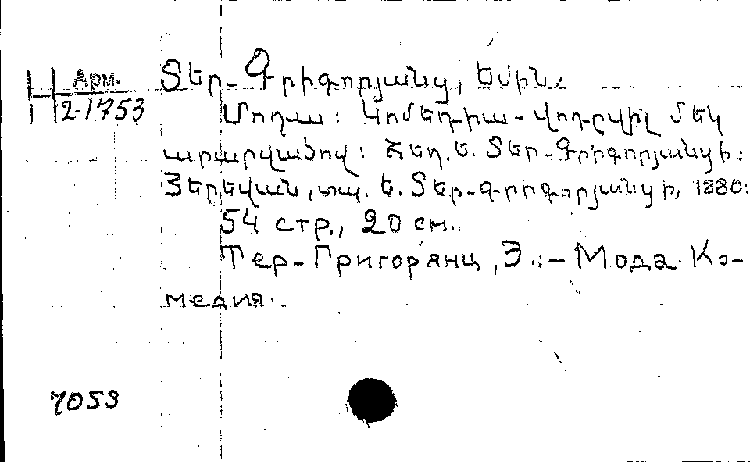 Арм.
Н 2-1753
Տեր-Գրիգորյանց, Էմին.
Մոդա: Կոմեդիա-վոդըվիլ մեկ
արարվածով: Հեղ. Ե. Տեր-Գրիգորյանցի:
Յերեվան, տպ. Ե. Տեր-Գրիգորյանցի, 1880:
54 стр., 20 см.
Тер-Григорянц, Э.:- Мода. Ко-
медия.
7053